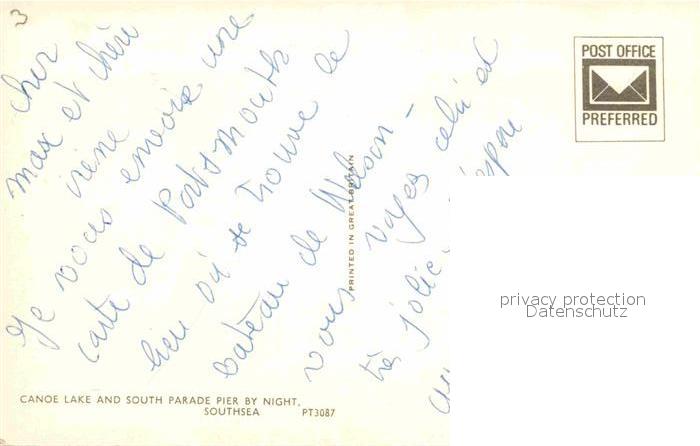 3
Cher
max et chère
irène
Je vous envoie une
carte de Portsmouth
lieu où se trouve le
bateau de Nelson -
vous voyez celà est
très jolie
PRINTED IN GREAT BRITAIN
POST OFFICE
PREFERRED
privacy protection
Datenschutz
CANOE LAKE AND SOUTH PARADE PIER BY NIGHT,
SOUTHSEA PT3087